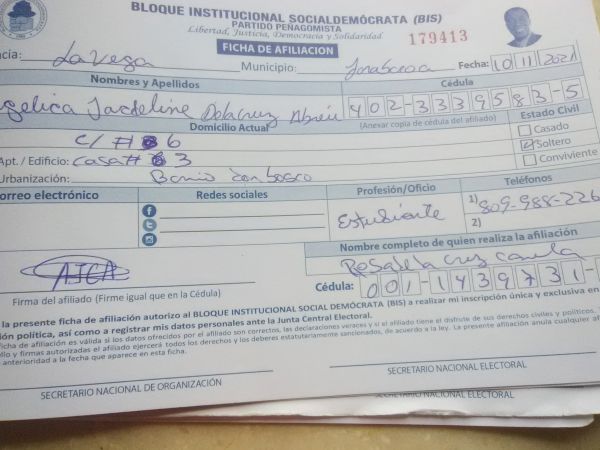 BLOQUE INSTITUCIONAL SOCIALDEMÓCRATA (BIS)
PARTIDO PEÑAGOMISTA
Libertad, Justicia, Democracia y Solidaridad
FICHA DE AFILIACIÓN
179413
ncia: La Vega Municipio: Jarabacoa Fecha: 10 11 2021
Nombres y Apellidos Cédula
ngelica Jacdeline Delacruz Abreu 402-3339583-5
(Anexar copia de cédula del afiliado)
Domicilio Actual Estado Civil
C/ # 6 Casado
Apt. / Edificio: Casa # 3 Soltero
Urbanización: Barrio Don bosco Conviviente
orreo electrónico Redes sociales Profesión/Oficio Teléfonos
Estudiante 1) 809-988-226
2)
Nombre completo de quien realiza la afiliación
Cruz
AJCA
Firma del afiliado (Firme igual que en la Cédula) Cédula: 001-1439731-
la presente ficha de afiliación autorizo al BLOQUE INSTITUCIONAL SOCIAL DEMÓCRATA (BIS) a realizar mi inscripción única y exclusiva en
ión política, así como a registrar mis datos personales ante la Junta Central Electoral.
ficha de afiliación es válida si los datos ofrecidos por el afiliado son correctos, las declaraciones veraces y si el afiliado tiene el disfrute de sus derechos civiles y políticos.
llo y firmas autorizadas el afiliado ejercerá todos los derechos y los deberes estatutariamente sancionados, de acuerdo a la ley. La presente afiliación anula cualquier
anterioridad a la fecha que aparece en esta ficha.
SECRETARIO NACIONAL DE ORGANIZACIÓN SECRETARIO NACIONAL ELECTORAL
NACIONAL ELECTORAL